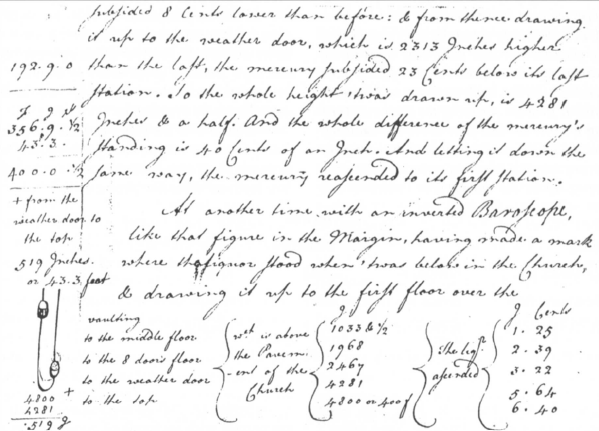 subsided 8 Cents lower than before: & from thence drawing
it up to the weather door, which is 2313 Inches higher
than the last, the mercury subsided 23 Cents below its last
station. So the whole height 'twas drawn up, is 4281
Inches & a half. And the whole difference of the mercury's
standing is 40 Cents of an Inch. And letting it down the
same way, the mercury reascended to its first station.
At another time with an inverted Baroscope,
like that figure in the Margin, having made a mark
where the liquor stood when 'twas below in the Church,
& drawing it up to the first floor over the
vaulting
to the middle floor
to the 8 doors floor
to the weather door
to the top
wch is above
the Pavem-
-ent of the
Church
J
1033 & 1/2
1968
2467
4281
4800 or 400 f
The liqr
ascended
J Cents
1. 25
2. 39
3. 22
5. 64
6. 40
192. 9. 0
356. 9. 1/2
43. 3.
400. 0. 1/2
+ from the
weather door to
the top
519 Inches.
or 43.3 feet
4800 +
4281
519 J